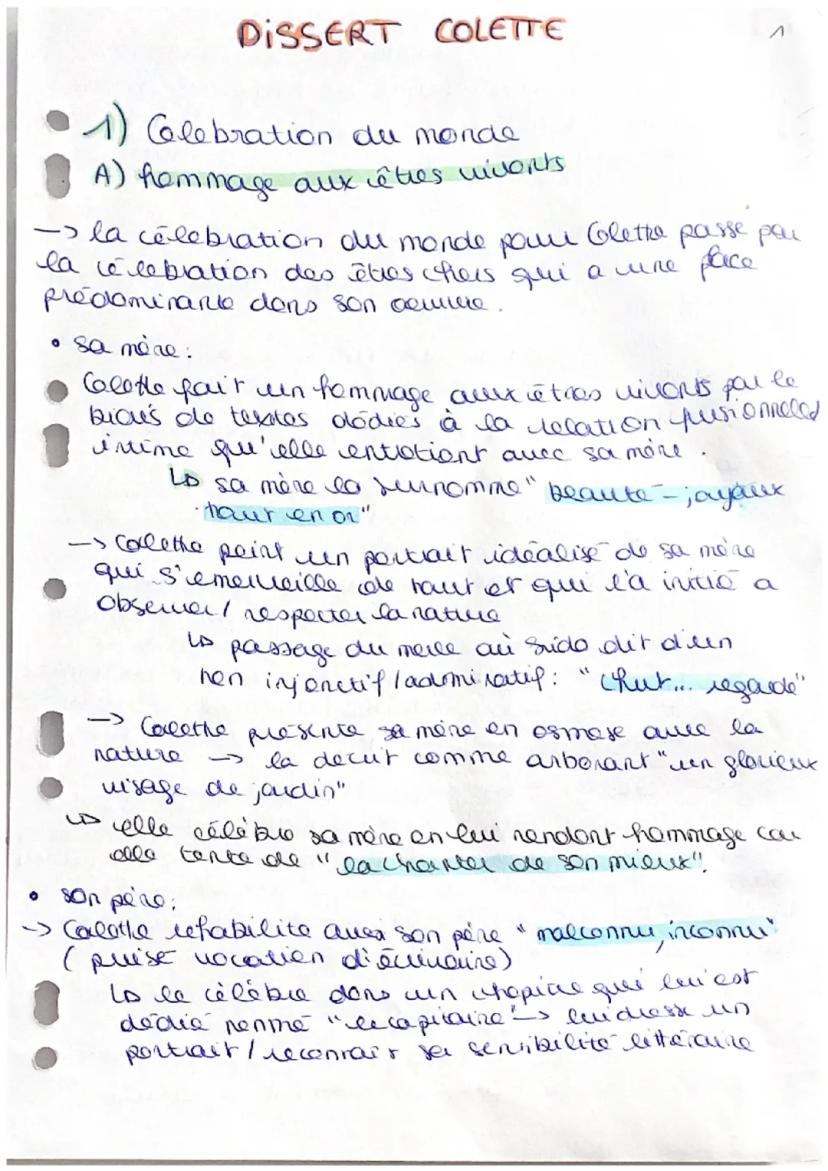 DISSERT COLETTE 1
1) Celebration du monde
A) hommage aux êtres vivants
-> la célebration du monde pour Colette passe par
la célebration des êtres chers qui a une place
prédominante dans son oeuvre.
• sa mère :
Colette fait un hommage aux êtres vivants par le
biais de textes dédiés à la relation fusionnelle/
intime qu'elle entretient avec sa mère.
↳ sa mère la surnomme "beauté - joyaux
tout en or"
-> Colette peint un portrait idéalisé de sa mère
qui s'emerveille de tout et qui l'a initié a
observer / respecter la nature
↳ passage du merle où Sido dit d'un
ton injonctif / admiratif : "chut... regarde"
-> Colette présente sa mère en osmose avec la
nature -> la decrit comme arborant "un glorieux
visage de jardin"
↳ elle célèbre sa mère en lui rendant hommage car
elle tente de "la chanter de son mieux".
• son père :
-> Colette rehabilite aussi son père "malconnu, inconnu"
( puise vocation d'écrivaine)
↳ le célèbre dans un chapitre qui lui est
dédié nommé "le capitaine" -> lui dresse un
portrait / reconnait sa sensibilité littéraire